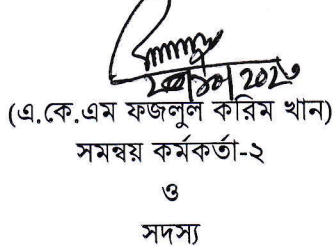 (এ.কে.এম ফজলুল করিম খান)
সমন্বয় কর্মকর্তা-২
ও
সদস্য